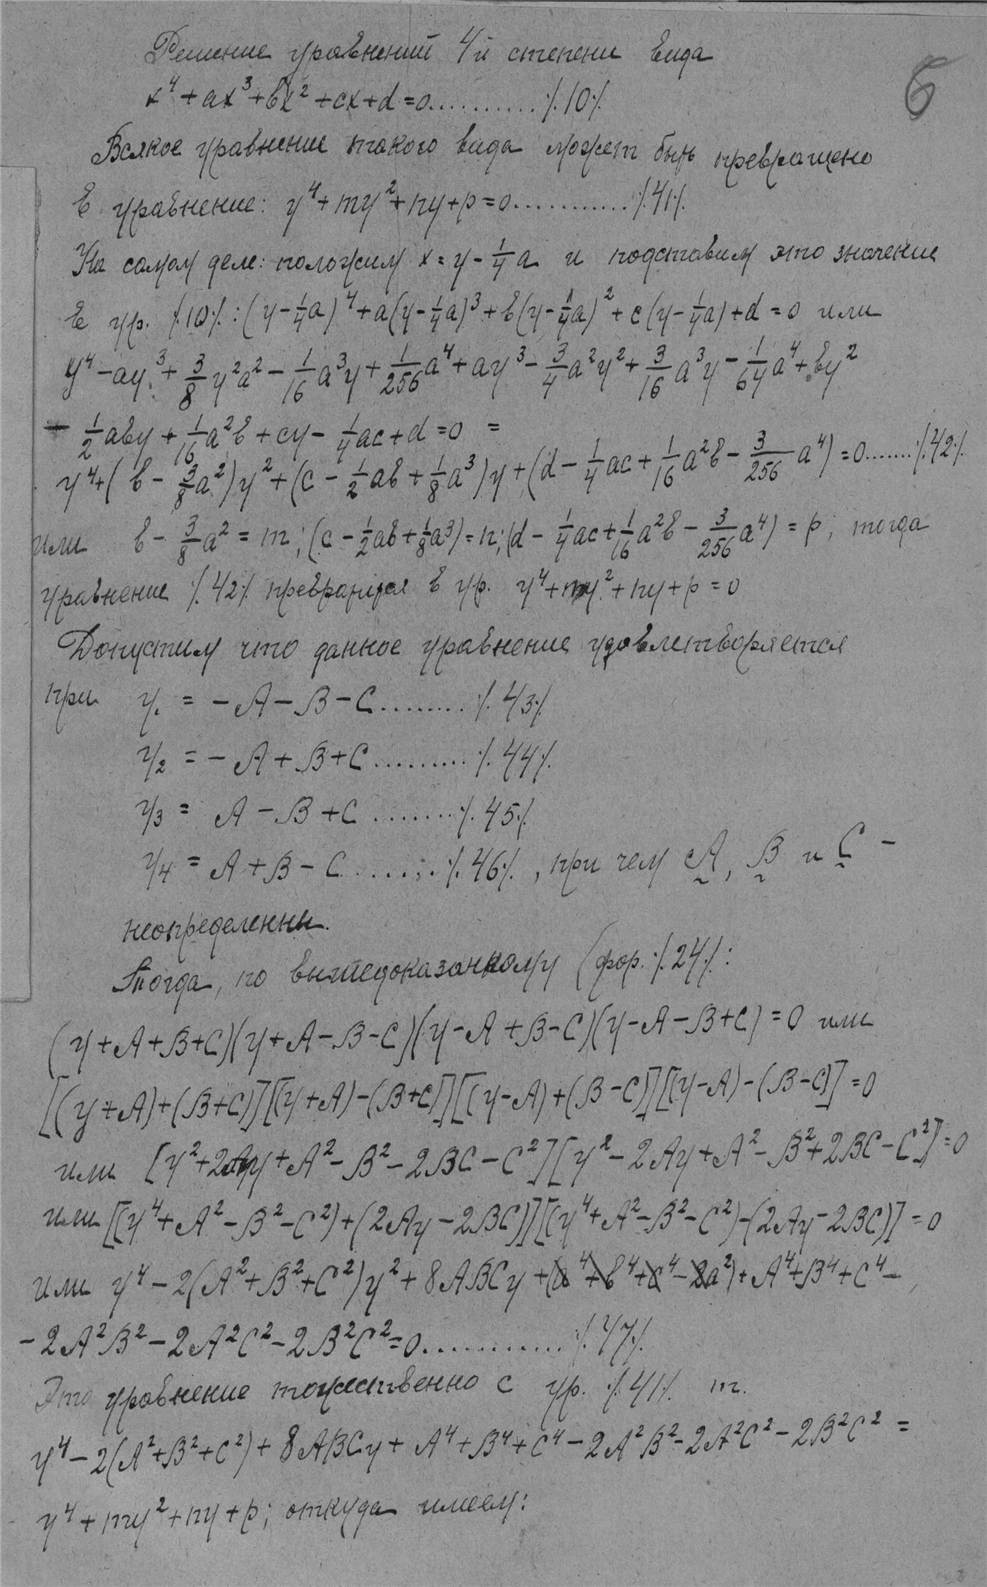 6
Решение уравнений 4й степени вида
x⁴ + ax³ + bx² + cx + d = 0........... /.10./.
Всякое уравнение такого вида может быть превращено
в уравнение: y⁴ + my² + ny + p = 0........... /.41./.
На самом деле: положим x = y - 1/4 a и подставим это значение
в ур. /.10./. : (y - 1/4 a)⁴ + a(y - 1/4 a)³ + b(y - 1/4 a)² + c(y - 1/4 a) + d = 0 или
y⁴ - ay³ + 3/8 y²a² - 1/16 a³y + 1/256 a⁴ + ay³ - 3/4 a²y² + 3/16 a³y - 1/64 a⁴ + by²
- 1/2 aby + 1/16 a²b + cy - 1/4 ac + d = 0 =
y⁴ + (b - 3/8 a²)y² + (c - 1/2 ab + 1/8 a³)y + (d - 1/4 ac + 1/16 a²b - 3/256 a⁴) = 0....... /.42./.
или b - 3/8 a² = m; (c - 1/2 ab + 1/8 a³) = n; (d - 1/4 ac + 1/16 a²b - 3/256 a⁴) = p; тогда
уравнение /.42./. превратится в ур. y⁴ + my² + ny + p = 0
Допустим что данное уравнение удовлетворяется
при y₁ = - A - B - C ........ /.43./.
y₂ = - A + B + C ......... /.44./.
y₃ = A - B + C ........ /.45./.
y₄ = A + B - C ....... /.46./. , при чем A, B и C -
неопределенны.
Тогда, по вышедоказанному (фор. /.24./. :
(y + A + B + C)(y + A - B - C)(y - A + B - C)(y - A - B + C) = 0 или
[(y + A) + (B + C)][(y + A) - (B + C)][(y - A) + (B - C)][(y - A) - (B - C)] = 0
или [y² + 2Ay + A² - B² - 2BC - C²][y² - 2Ay + A² - B² + 2BC - C²] = 0
или [(y⁴ + A² - B² - C²) + (2Ay - 2BC)][(y⁴ + A² - B² - C²) - (2Ay - 2BC)] = 0
или y⁴ - 2(A² + B² + C²)y² + 8ABCy + A⁴ + B⁴ + C⁴ -
- 2A²B² - 2A²C² - 2B²C² = 0............ /.47./.
Это уравнение тожественно с ур. /.41./. т.
y⁴ - 2(A² + B² + C²) + 8ABCy + A⁴ + B⁴ + C⁴ - 2A²B² - 2A²C² - 2B²C² =
y⁴ + my² + ny + p; откуда имеем: